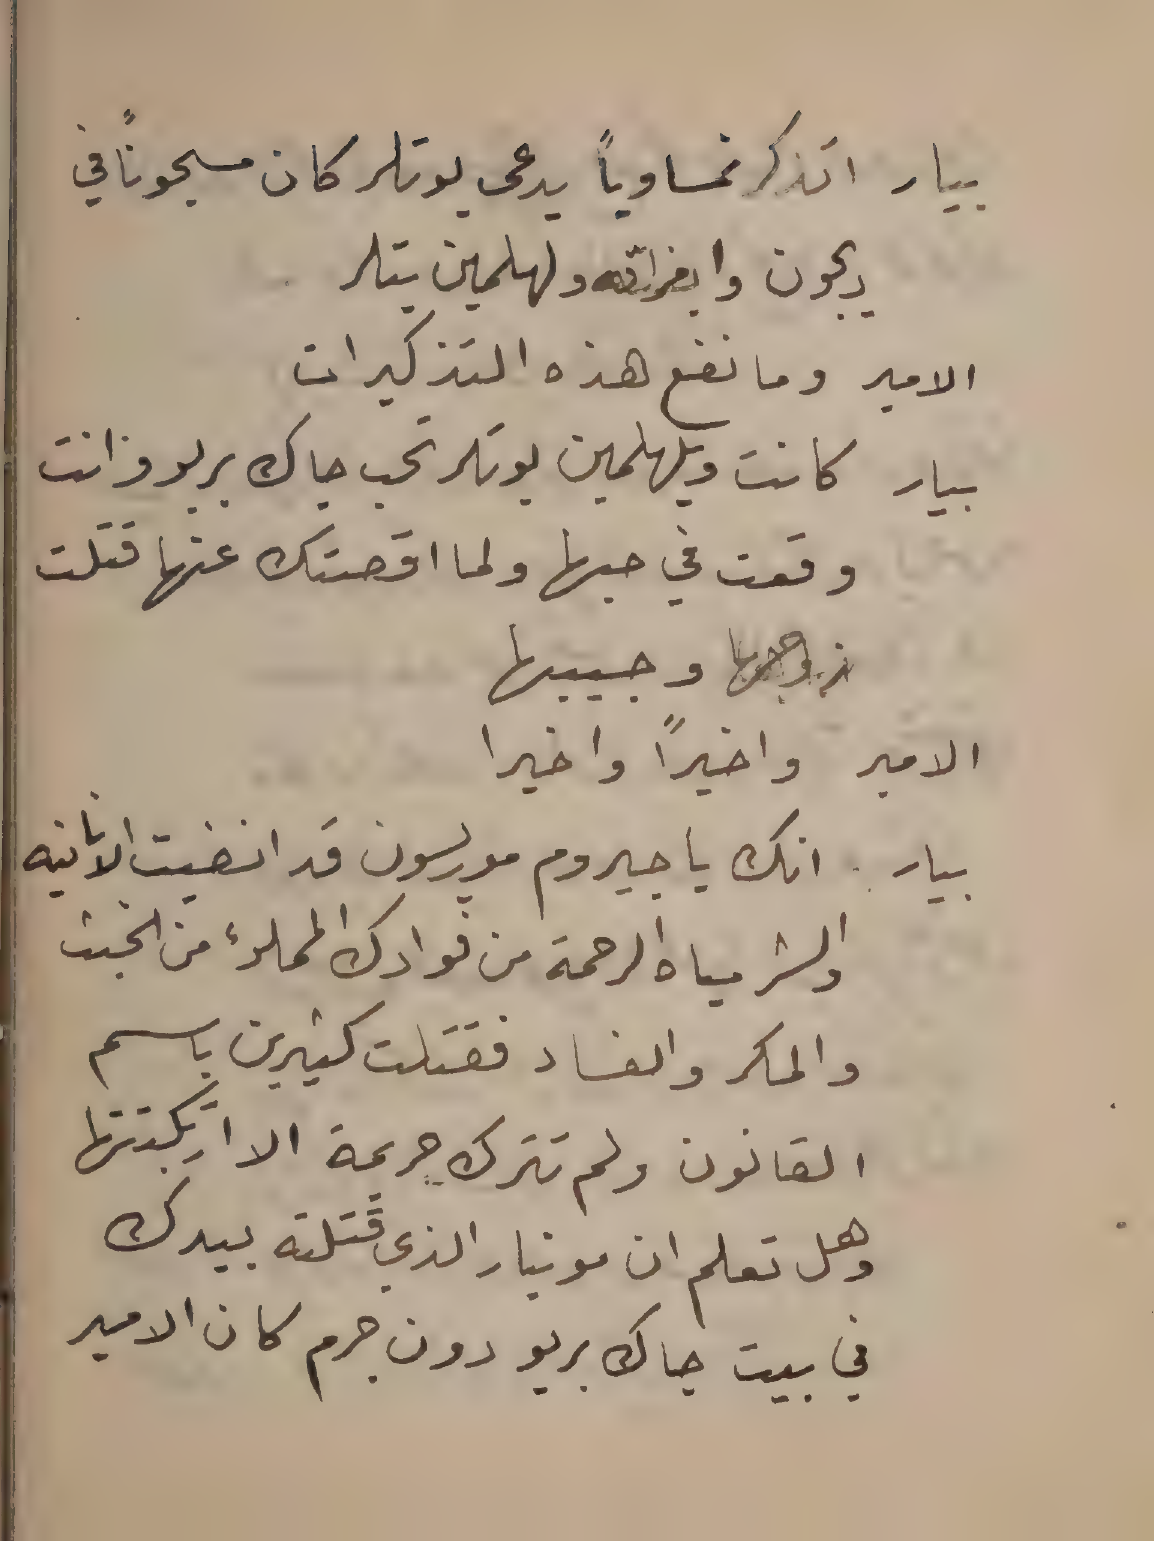 بيار اتذكر نمساوياً يدعى يوتلر كان مسجوناً في
ديجون وابنته ولهلمين يتلر
الامير وما نفع هذه التذكيرات
بيار كانت ويلهلمين يوتلر تحب جاك بريو وانت
وقعت في حبها ولما اقصتك عنها قتلت
زوجها وحبيبها
الامير واخيراً واخيرا
بيار انك يا جيروم مورلسون قد انضبت الانانيه
والشر مياه الرحمة من فوادك المملوء من الخبث
والمكر والفساد فقتلت كثيرين باسم
القانون ولم تترك جريمة الا ارتكبتها
وهل تعلم ان مونبار الذي قتلته بيدك
في بيت جاك بريو دون جرم كان الامير